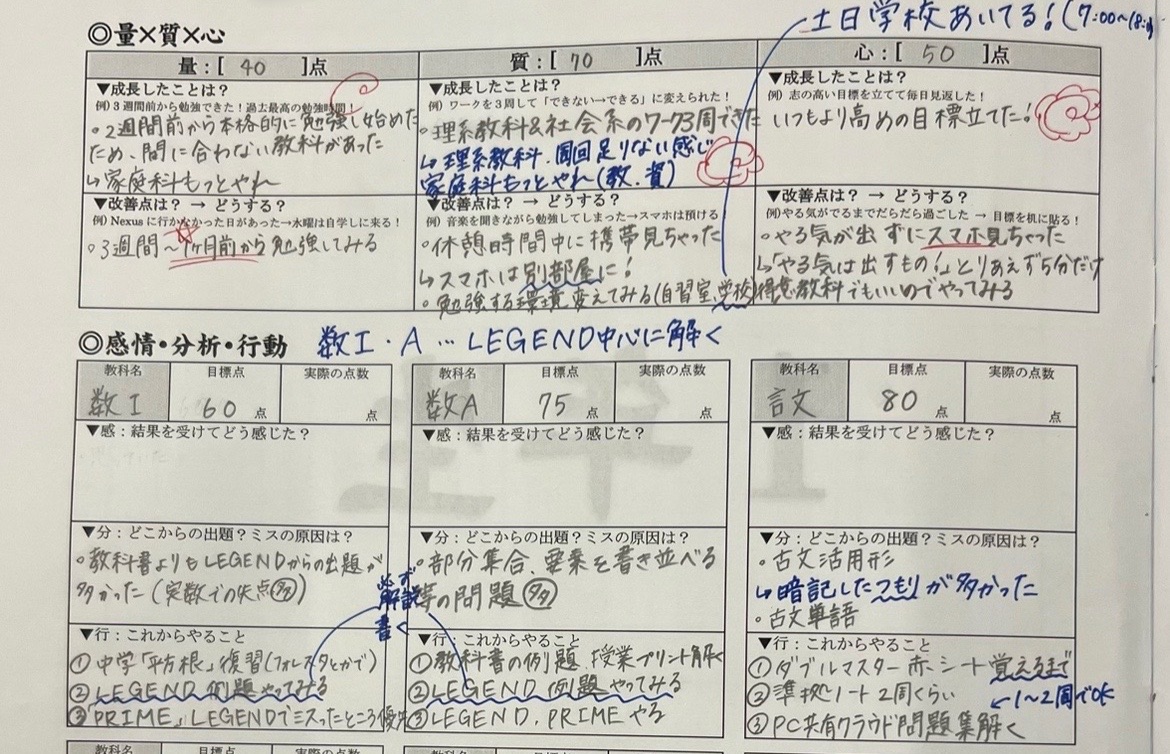 土日学校あいてる！(7:00〜18:0
◎量×質×心
量：[ 40 ]点
▼成長したことは？
例）3週間前から勉強できた！過去最高の勉強時間！
・2週間前から本格的に勉強し始めた
ため、間に合わない教科があった
↳家庭科もっとやれ
▼改善点は？ → どうする？
例）Nexusに行かなかった日があった→水曜は自学しに来る！
・3週間〜1ヶ月前から勉強してみる
質：[ 70 ]点
▼成長したことは？
例）ワークを3周して「できない→できる」に変えられた！
・理系教科&社会系のワーク3周できた
↳理系教科、周回足りない感じ
家庭科もっとやれ(教、資)
▼改善点は？ → どうする？
例）音楽を聞きながら勉強してしまった→スマホは預ける
・休憩時間中に携帯見ちゃった
↳スマホは別部屋に！
・勉強する環境変えてみる(自習室、学校)
心：[ 50 ]点
▼成長したことは？
例）志の高い目標を立てて毎日見返した！
いつもより高めの目標立てた！
▼改善点は？ → どうする？
例）やる気がでるまでだらだら過ごした → 目標を机に貼る！
・やる気が出ずにスマホ見ちゃった
↳「やる気は出すもの！」とりあえず5分だけ
得意教科でもいいのでやってみる
◎感情・分析・行動
数Ⅰ・A … LEGEND中心に解く
教科名 目標点 実際の点数
数Ⅰ 60 点 点
▼感：結果を受けてどう感じた？
▼分：どこからの出題？ミスの原因は？
・教科書よりもLEGENDからの出題が
多かった（実数での失点多）
必ず
解説
書く
▼行：これからやること
①中学「平方根」復習(フォレスタとかで)
②LEGEND 例題やってみる
③PRIME、LEGENDでミスったところ優先
教科名 目標点 実際の点数
数A 75 点 点
▼感：結果を受けてどう感じた？
▼分：どこからの出題？ミスの原因は？
・部分集合、要素を書き並べる
等の問題多
▼行：これからやること
①教科書の例題、授業プリント解く
②LEGEND 例題やってみる
③LEGEND、PRIMEやる
教科名 目標点 実際の点数
言文 80 点 点
▼感：結果を受けてどう感じた？
▼分：どこからの出題？ミスの原因は？
・古文活用形
↳暗記したつもりが多かった
・古文単語
▼行：これからやること
①ダブルマスター赤シート覚えるまで
②準拠ノート2周くらい
←1〜2周でOK
③PC共有クラウド問題集解く
教科名 目標点 実際の点数
教科名 目標点 実際の点数
教科名 目標点 実際の点数